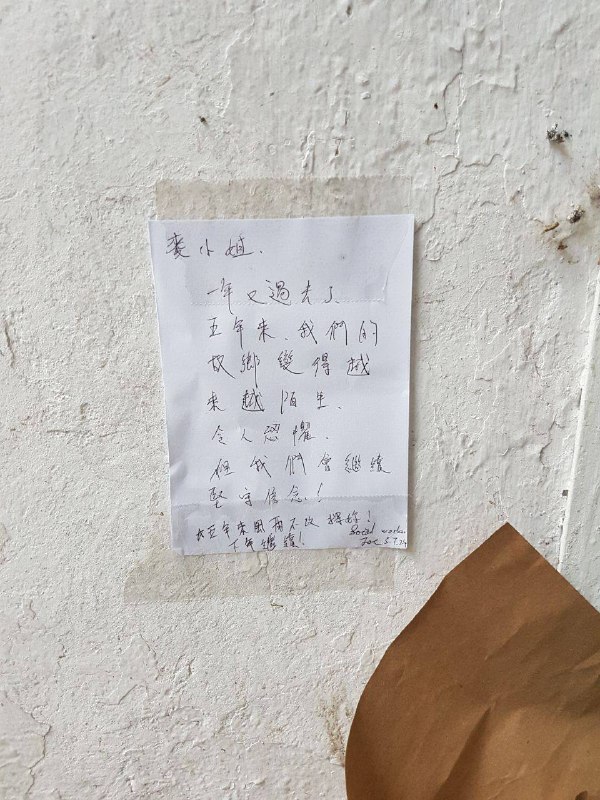 麥小姐.
一年又過去了
五年來,我們的
故鄉變得越
來越陌生.
令人恐懼.
但我們會繼續
堅守信念!
五年來風雨不改 探妳!
下年繼續!
Social worker
3.7.24